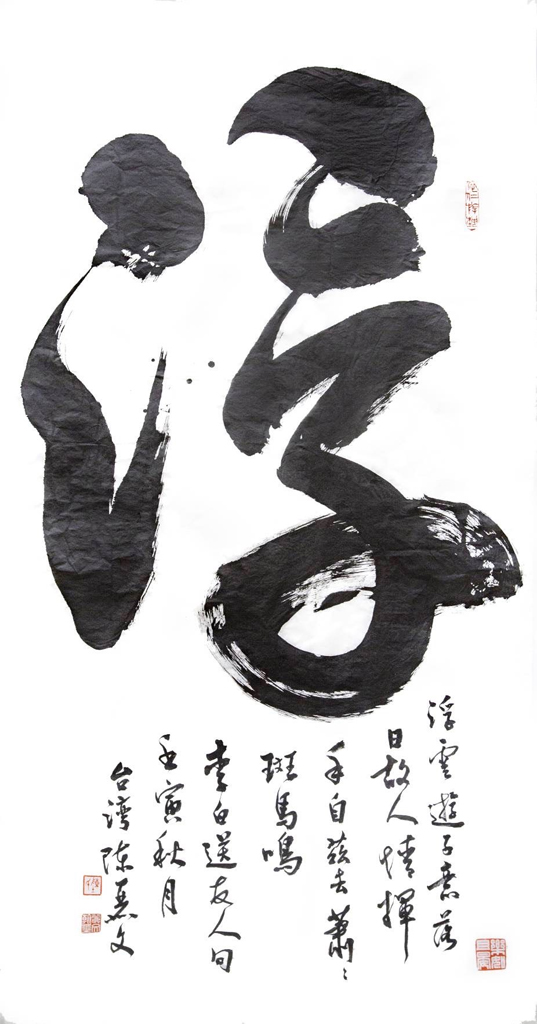 浮
浮雲遊子意落
日故人情揮
手自茲去蕭〻
斑馬鳴
李白送友人句
壬寅秋月
台灣陳文